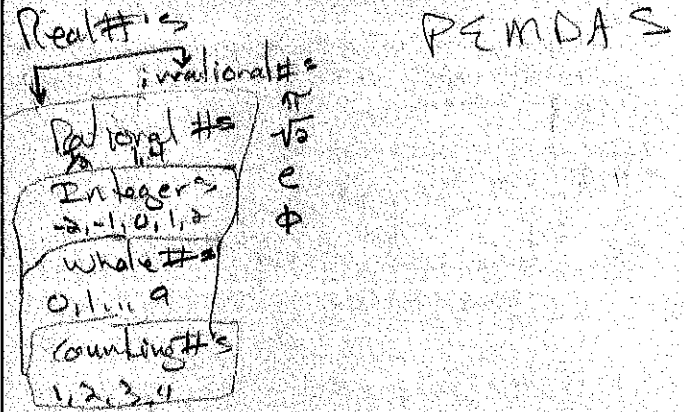 Real #'s
PEMDAS
irrational #s
π
Rational #s
√2
Integers
e
-2, -1, 0, 1, 2
φ
Whole #s
0, 1, ..., 9
Counting #'s
1, 2, 3, 4